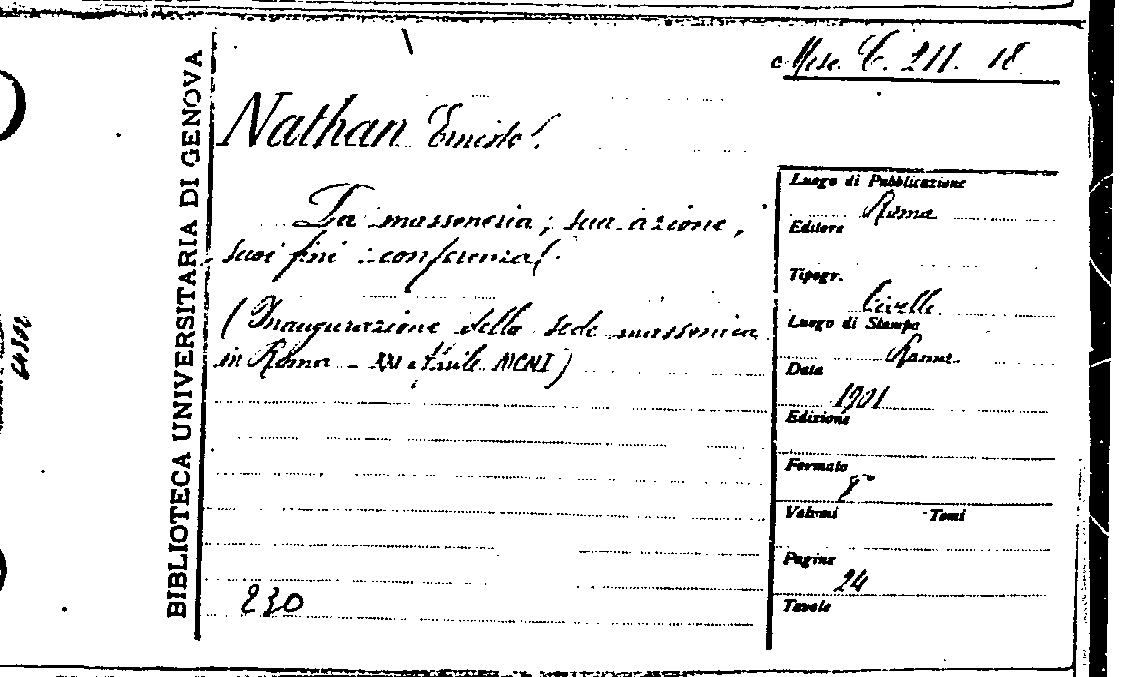 Misc. C. 211. 18
BIBLIOTECA UNIVERSITARIA DI GENOVA
Nathan Ernesto.
La massoneria; sua azione,
suoi fini: conferenza.
(Inaugurazione della sede massonica
in Roma - XXI Aprile MCMI)
230
Luogo di Pubblicazione
Roma
Editore
Tipogr.
Civelli
Luogo di Stampa
Roma
Data
1901
Edizione
Formato
8°
Volumi Tomi
Pagine
24
Tavole